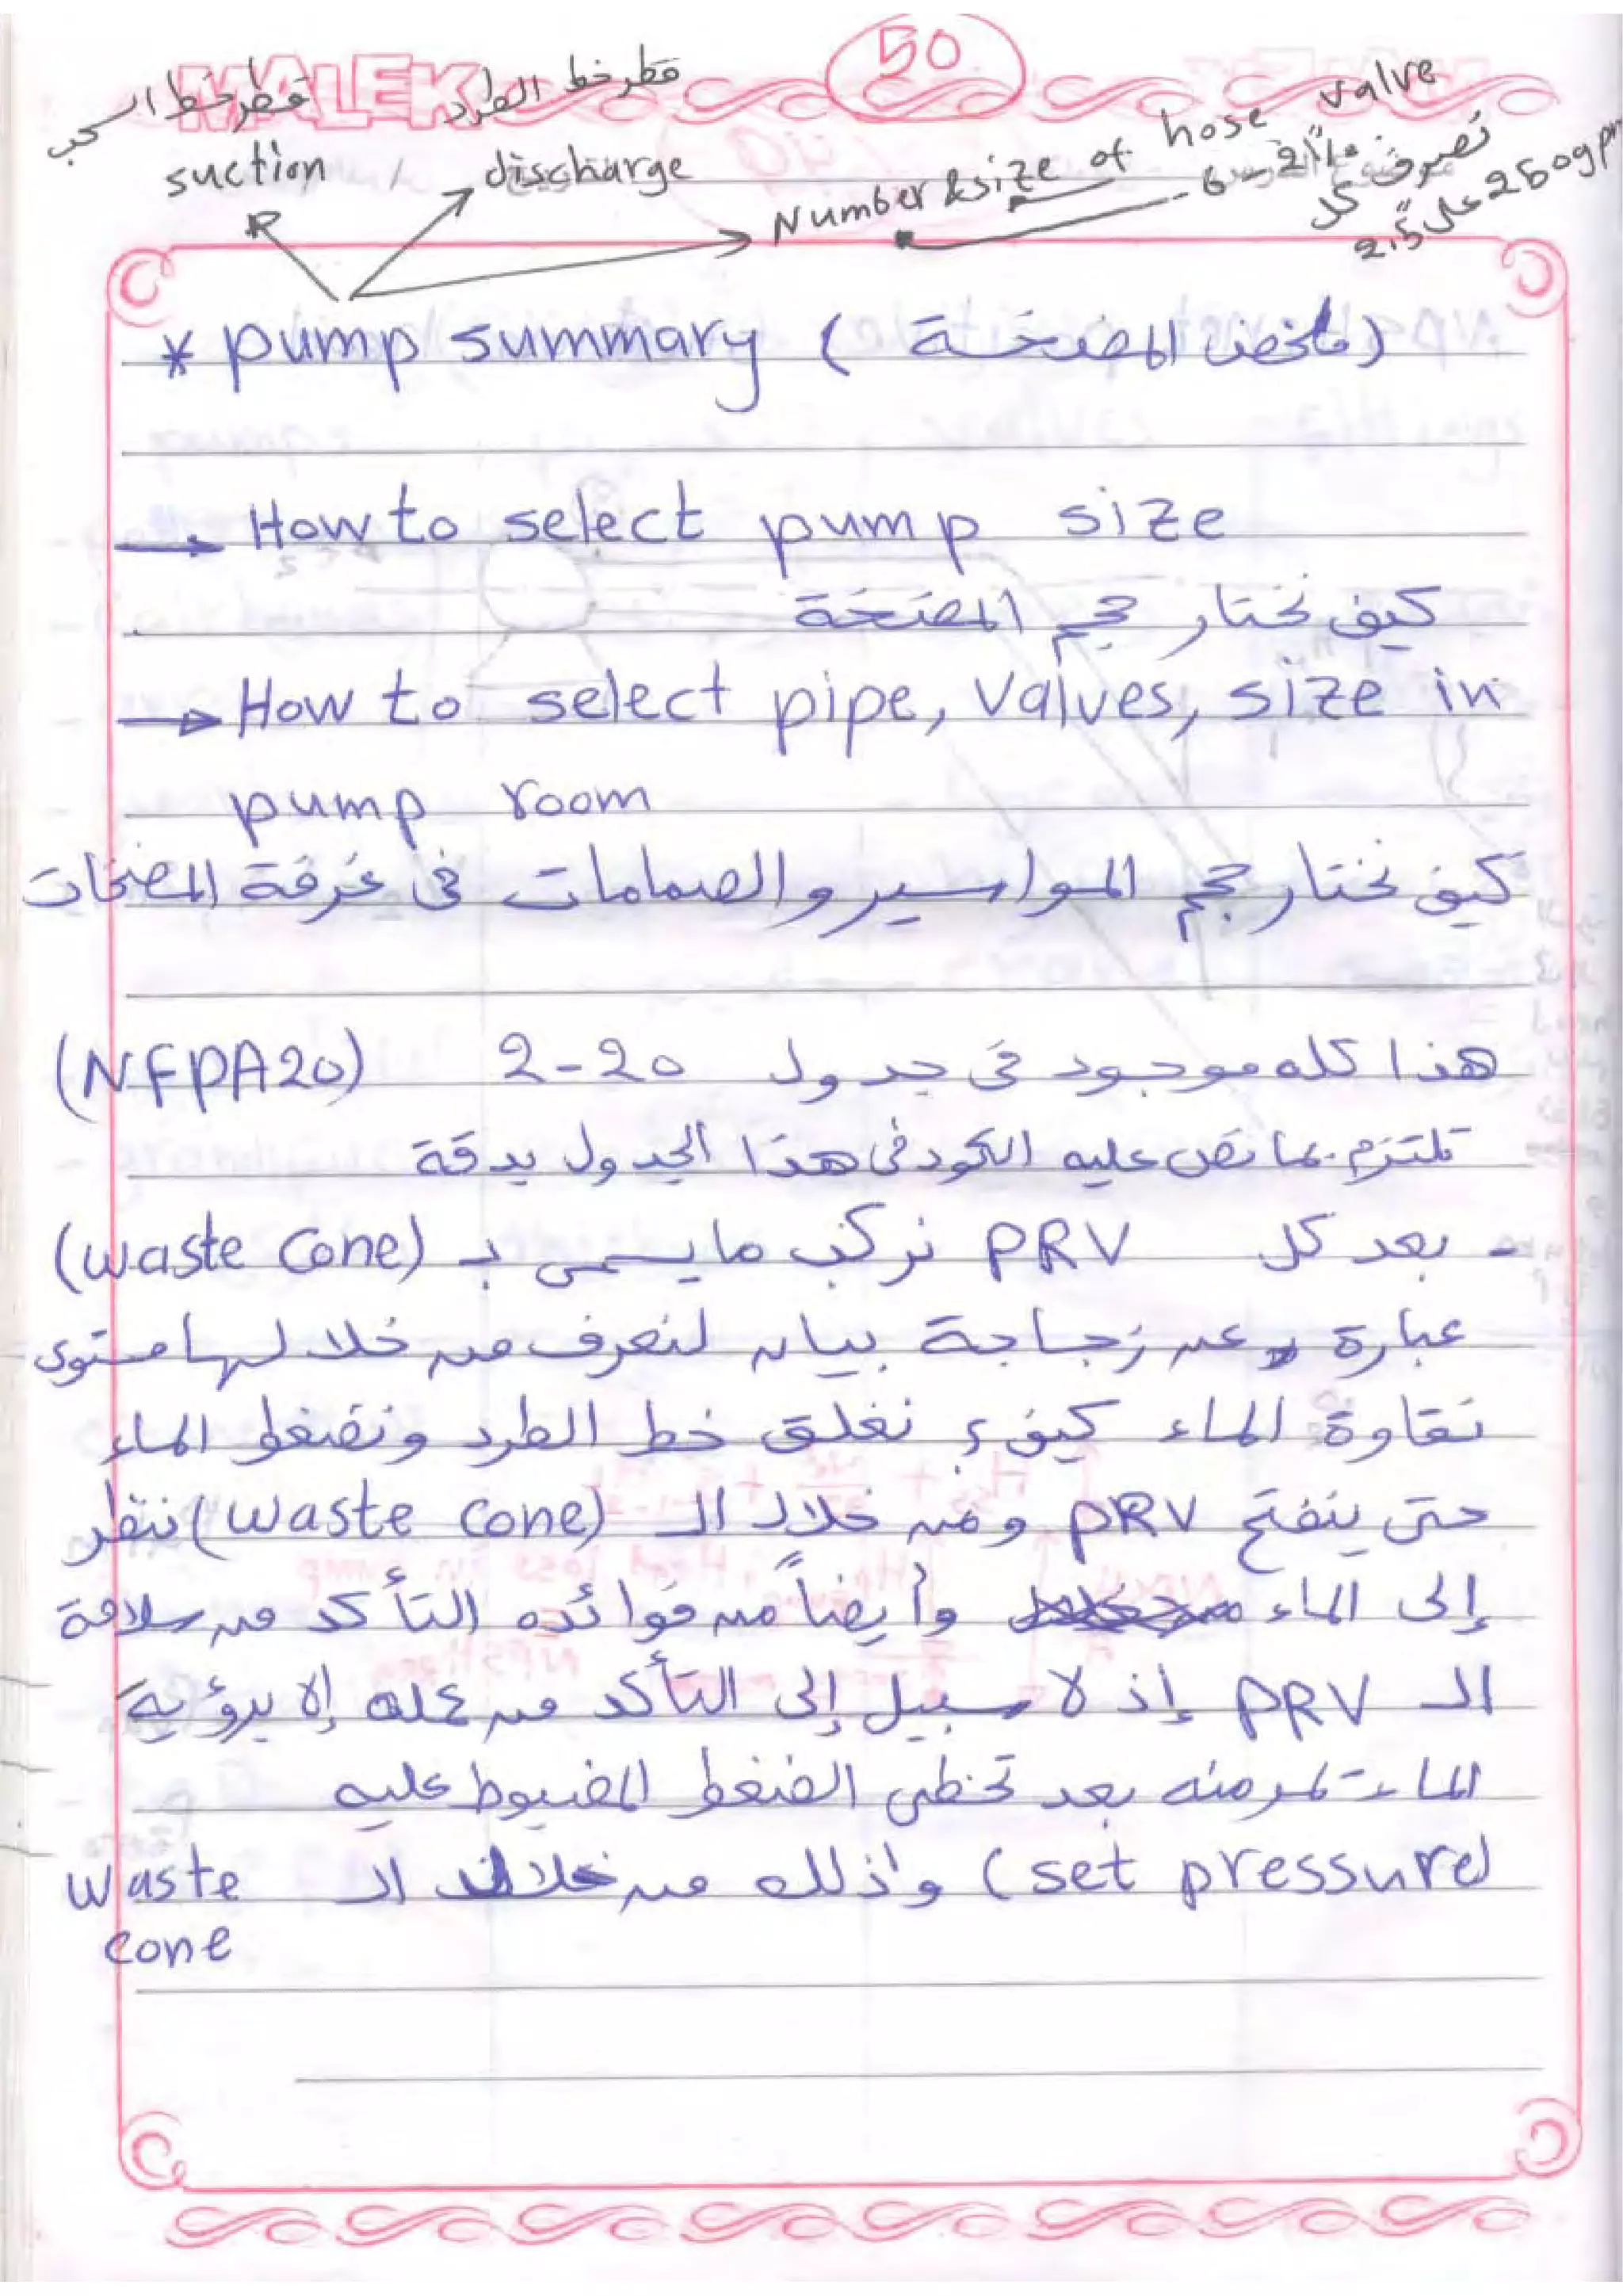 50
MALEK
قطر خط السحب
suction
قطر خط الطرد
discharge
Number & size of hose valve
6 - 2½"
تصرف كل 2.5" على 250gpm
* pump summary (ملخص المضخة)
→ How to select pump size
كيف نختار حجم المضخة
→ How to select pipe, valves, size in
pump room
كيف نختار حجم المواسير والصمامات في غرفة المضخات
هذا كله موجود في جدول 20-2 (NFPA20)
تلتزم بما نص عليه الكود في هذا الجدول بدقة
- بعد كل PRV نركب ما يسمى بـ (waste cone)
عبارة عن زجاجة بيان لنعرف من خلالها مستوى
نقاوة الماء كيف؟ نغلق خط الطرد ونضغط الماء
حتى ينفتح PRV ومن خلال الـ (waste cone) ننظر
إلى الماء وأيضاً من فوائده التأكد من سلامة
الـ PRV إذ لا سبيل إلى التأكد من عمله إلا برؤية
الماء تمر منه بعد تخطي الضغط المضبوط عليه
(set pressure) وذلك من خلال الـ waste
cone